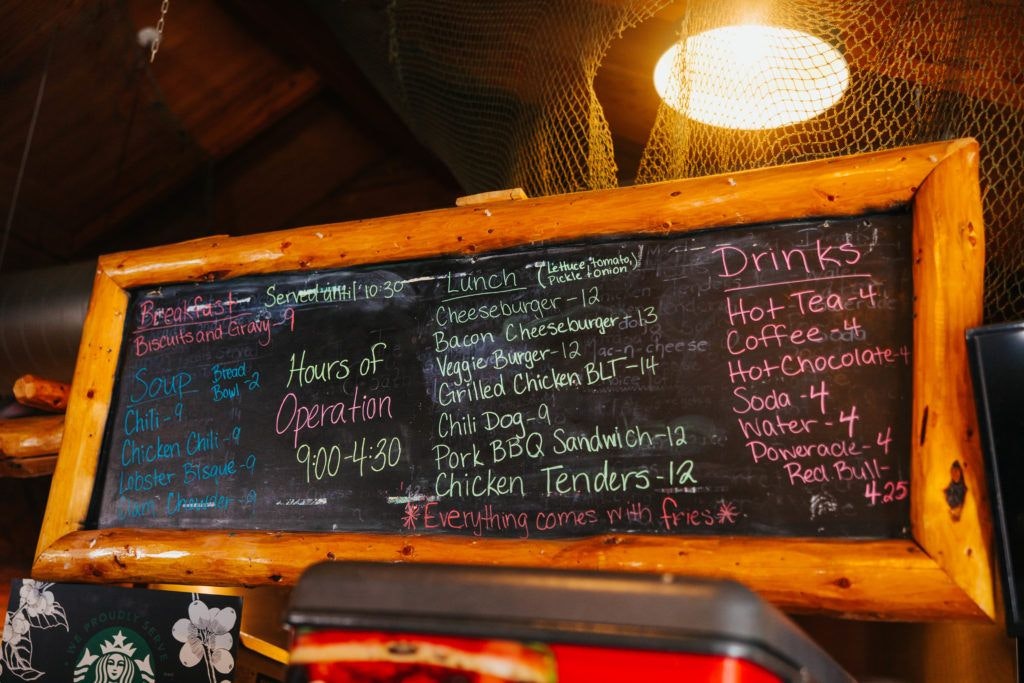 Breakfast Served until 10:30
Biscuits and Gravy-9
Soup Bread
Bowl-2
Chili-9
Chicken Chili-9
Lobster Bisque-9
Clam Chowder-9
Hours of
Operation
9:00-4:30
Lunch (Lettuce, tomato,
Pickle + onion)
Cheeseburger-12
Bacon Cheeseburger-13
Veggie Burger-12
Grilled Chicken BLT-14
Chili Dog-9
Pork BBQ Sandwich-12
Chicken Tenders-12
*Everything comes with fries*
Drinks
Hot Tea-4
Coffee-4
Hot Chocolate-4
Soda-4
Water-4
Powerade-4
Red Bull-
4.25
WE PROUDLY SERVE